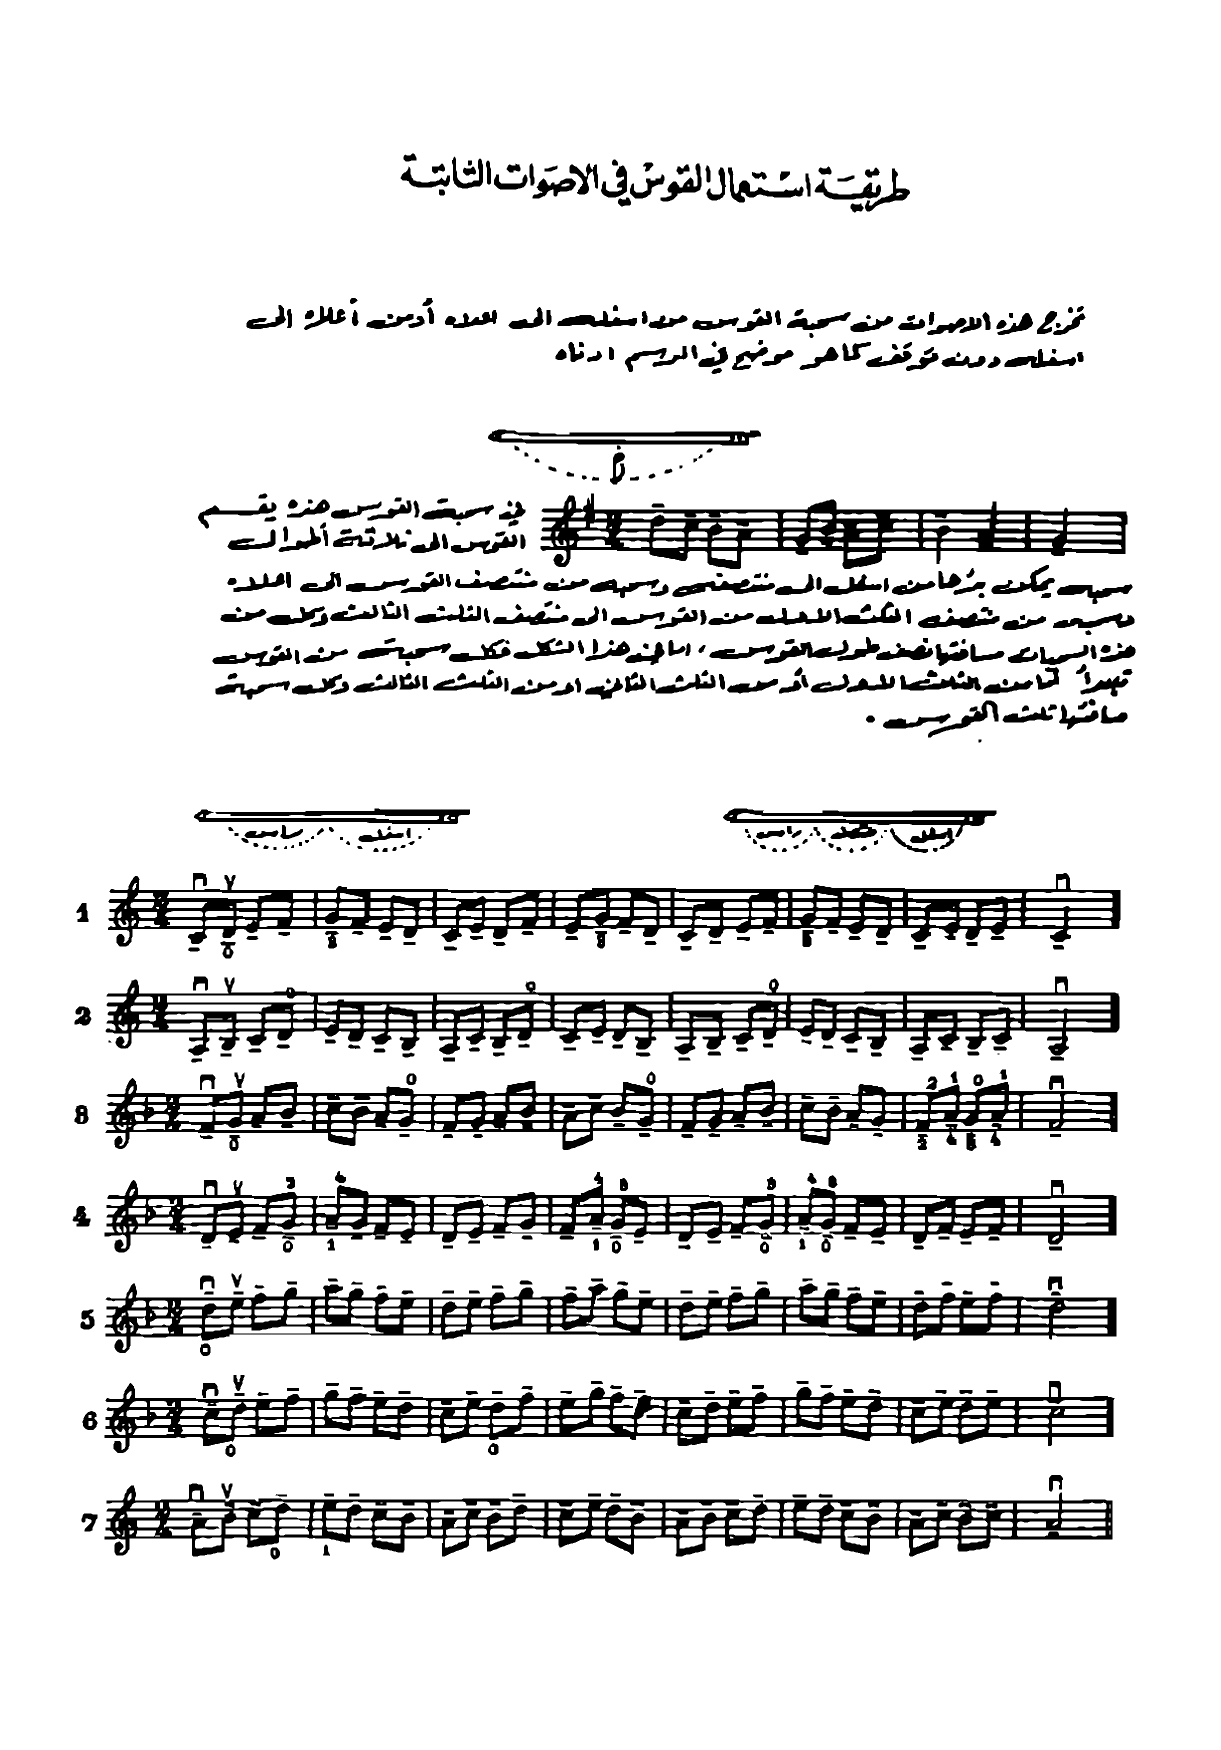 طريقة استعمال القوس في الاصوات الثابتة
تخرج هذه الاصوات من سحبة القوس من اسفله الى اعلاه أو من أعلاه الى
اسفله دون توقف كما هو موضح في الرسم ادناه
في سحبة القوس هذه يقسم
القوس الى ثلاثة أطوال
سحبه يمكن من اسفل الى منتصفه وسحبه من منتصف القوس الى اعلاه
وسحبه من منتصف الثلث الاول من القوس الى منتصف الثلث الثالث وكل من
هذه السحبات مسافتها نصف طول القوس ، اما في هذا الشكل فكل سحبة من القوس
تبدأ من الثلث الاول أو من الثلث الثاني او من الثلث الثالث وكل سحبة
مسافتها ثلث القوس .
راس اسفل
راس اسفل
1
2
3
4
5
6
7